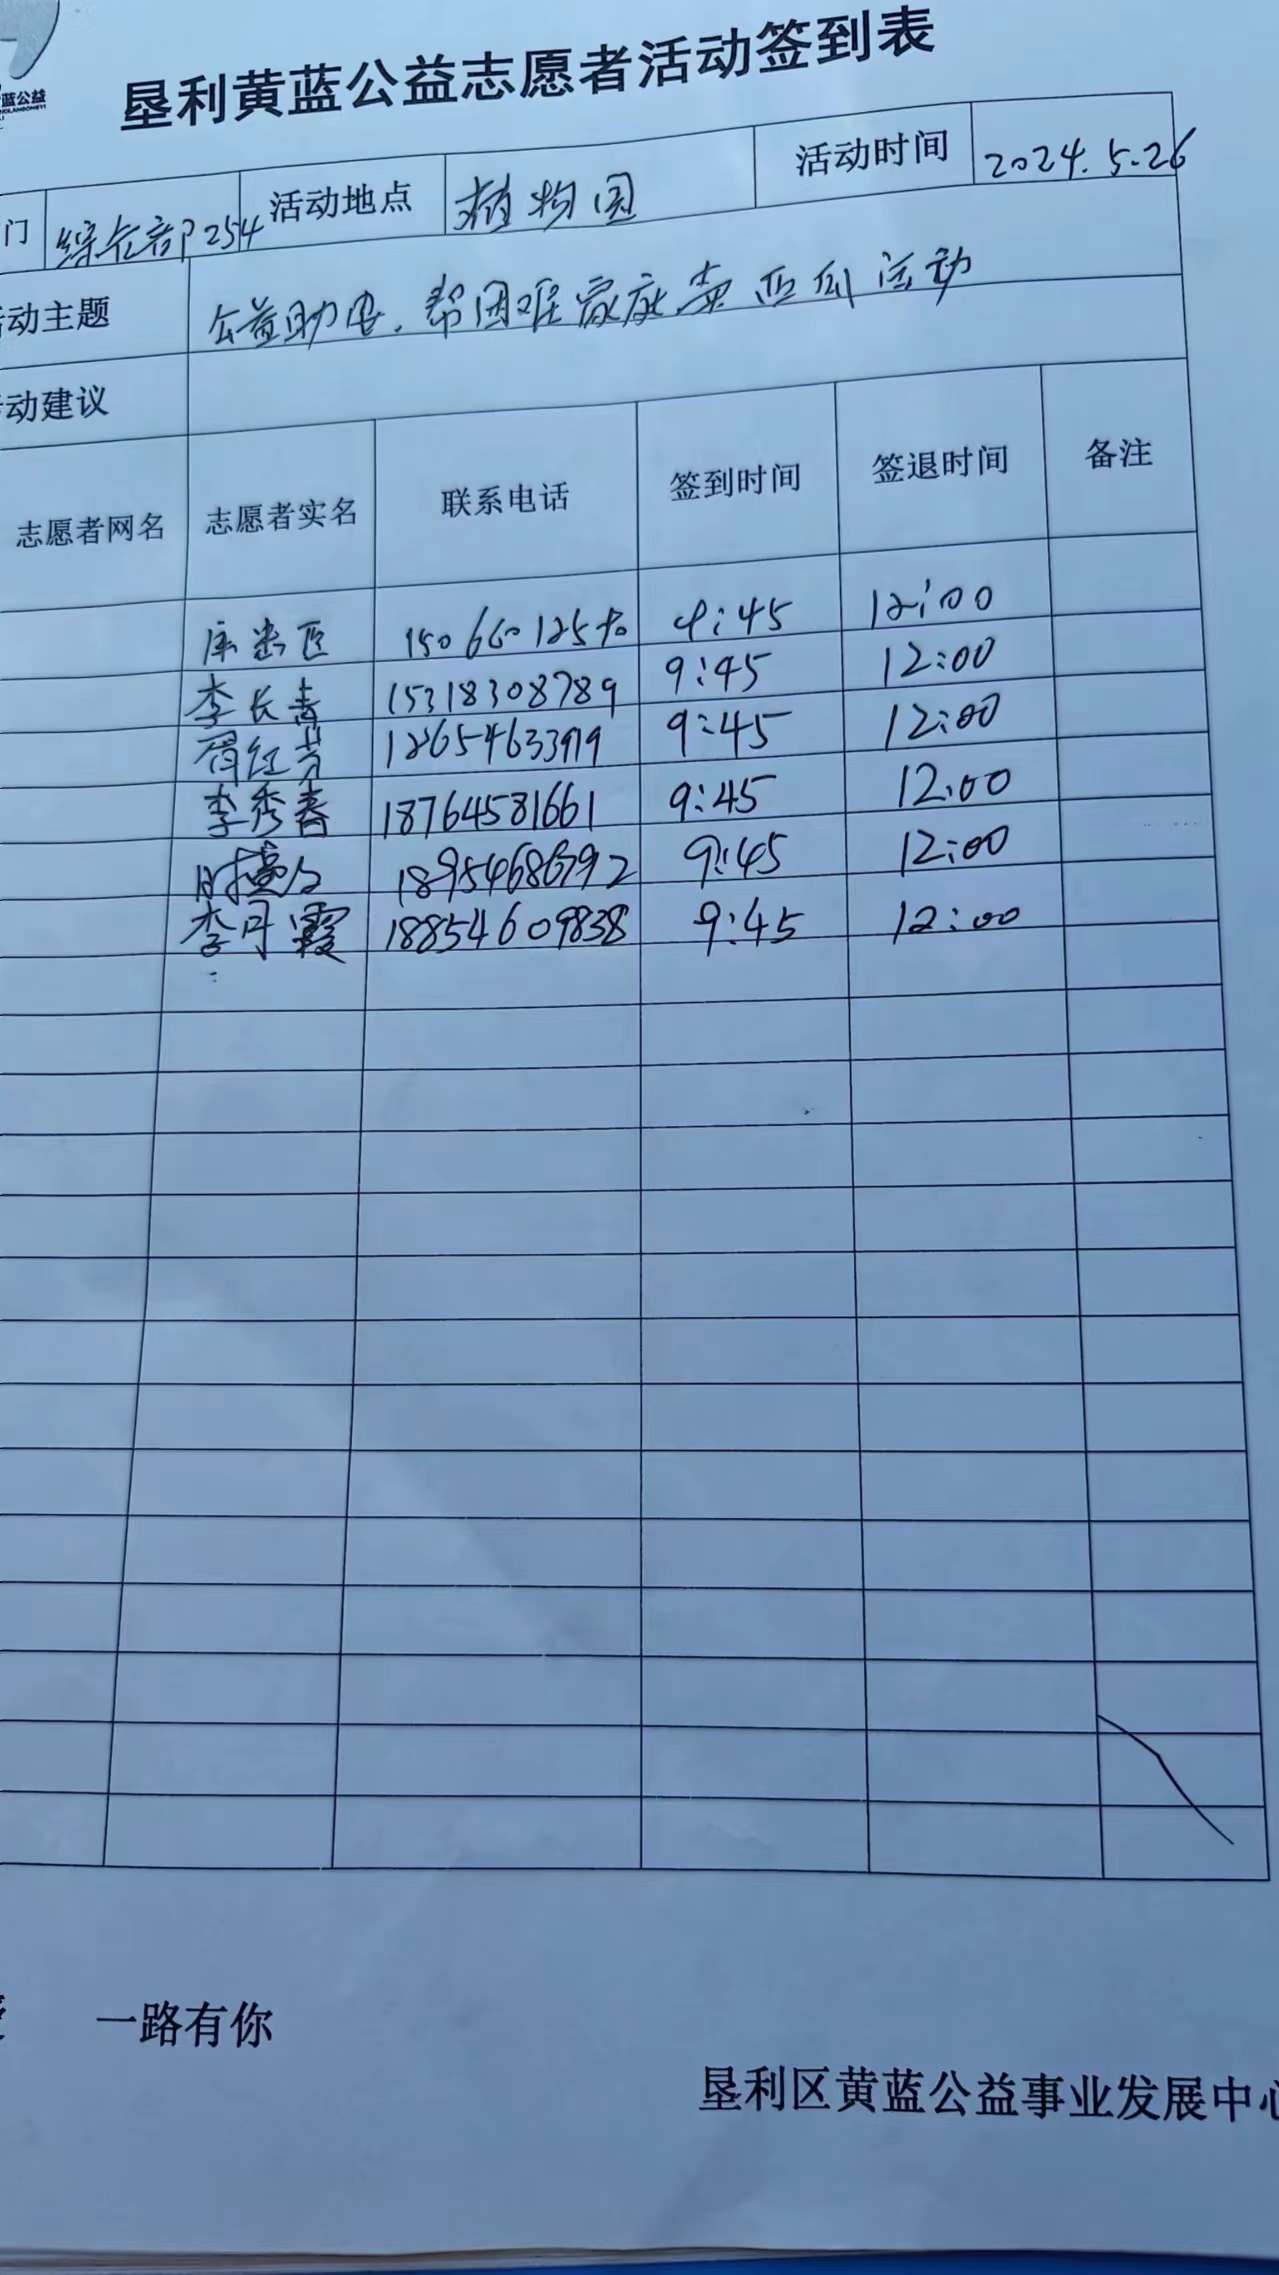 蓝公益
垦利黄蓝公益志愿者活动签到表
门 综合部254 活动地点 植物园 活动时间 2024.5.26
动主题 公益助农，帮困难家庭卖西瓜活动
动建议
志愿者网名 志愿者实名 联系电话 签到时间 签退时间 备注
9:45 12:00
李长青 15318308789 9:45 12:00
9:45 12:00
李秀春 18764581661 9:45 12:00
9:45 12:00
李丹霞 18854609838 9:45 12:00
一路有你
垦利区黄蓝公益事业发展中心